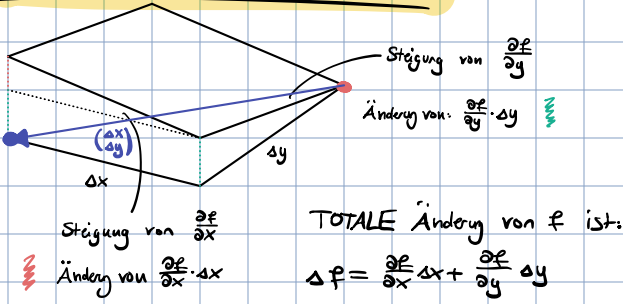 Steigung von ∂f/∂y
Änderung von: ∂f/∂y · Δy
(Δx
Δy)
Δy
Δx
Steigung von ∂f/∂x
Änderung von ∂f/∂x · Δx
TOTALE Änderung von f ist:
Δf = ∂f/∂x Δx + ∂f/∂y Δy